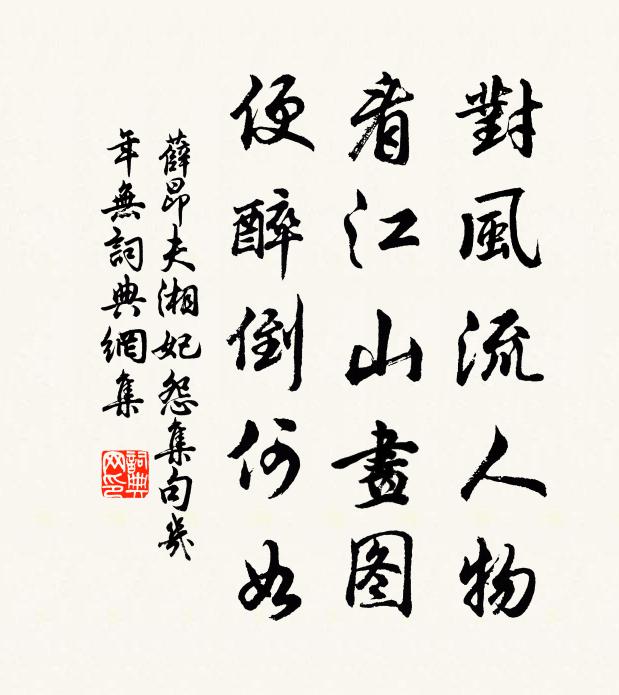 對風流人物
看江山畫图
便醉倒何如
薛昂夫湘妃怨集句歲
年無詞典網集
詞典网印